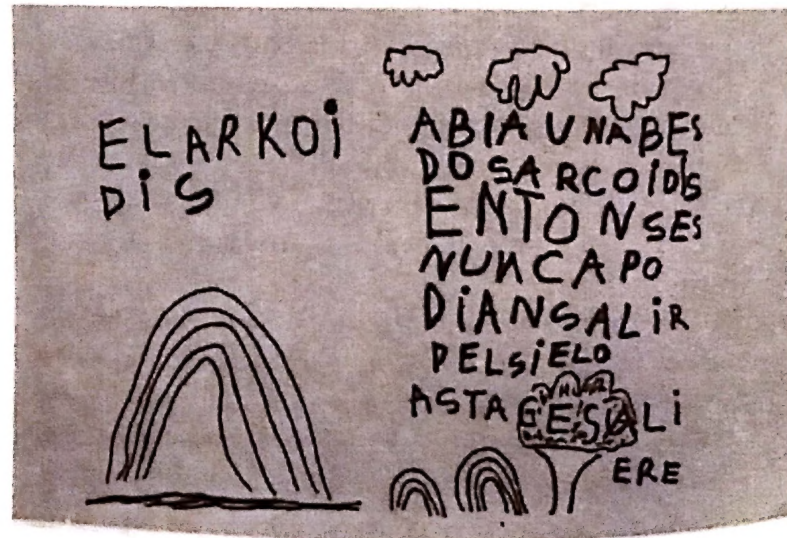 ELARKOi
DiS
ABIA UNA BES
DOSARCOIDIS
ENTONSES
NUNCA PO
DiANSALiR
DELSiELO
ASTA GESALi
ERE